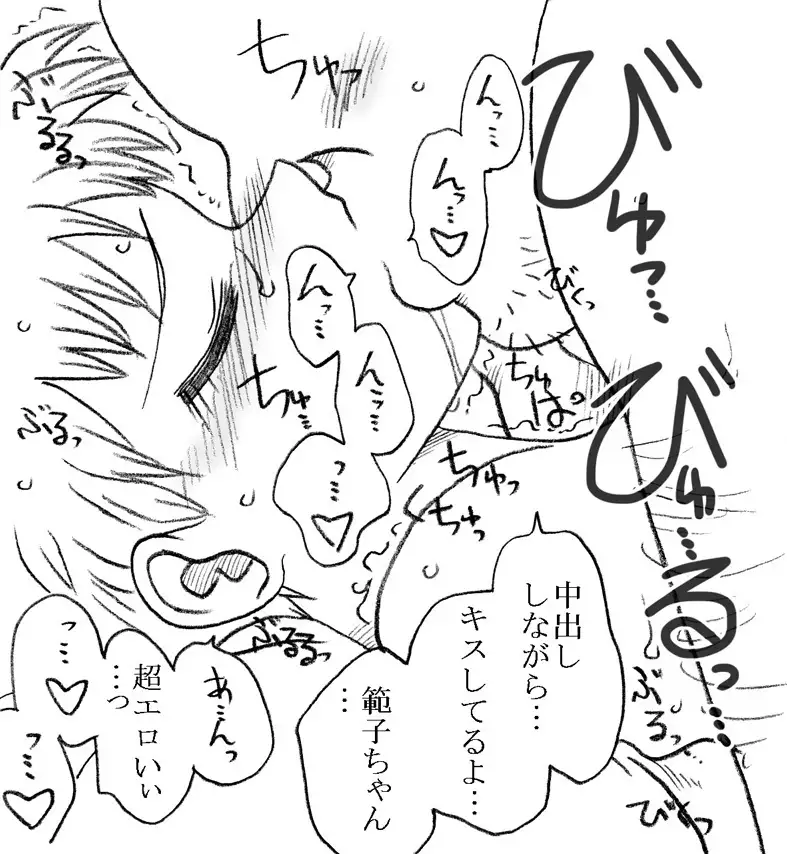 びゅっ…
びゅ…るっ…
びくっ
んっ…
んっ…♡
ちゅっ
ぶーるるっ
んっ…
んっ…
っ…♡
ちゅ…
ちゅぱ°
ちゅっ
ちゅっ
ぶるっ
中出し
しながら…
キスしてるよ…
範子ちゃん
…
ぶるっ
びくっ
ぶるるっ
あ…んっ
超エロいぃ
…っ
っ…♡
っ…♡